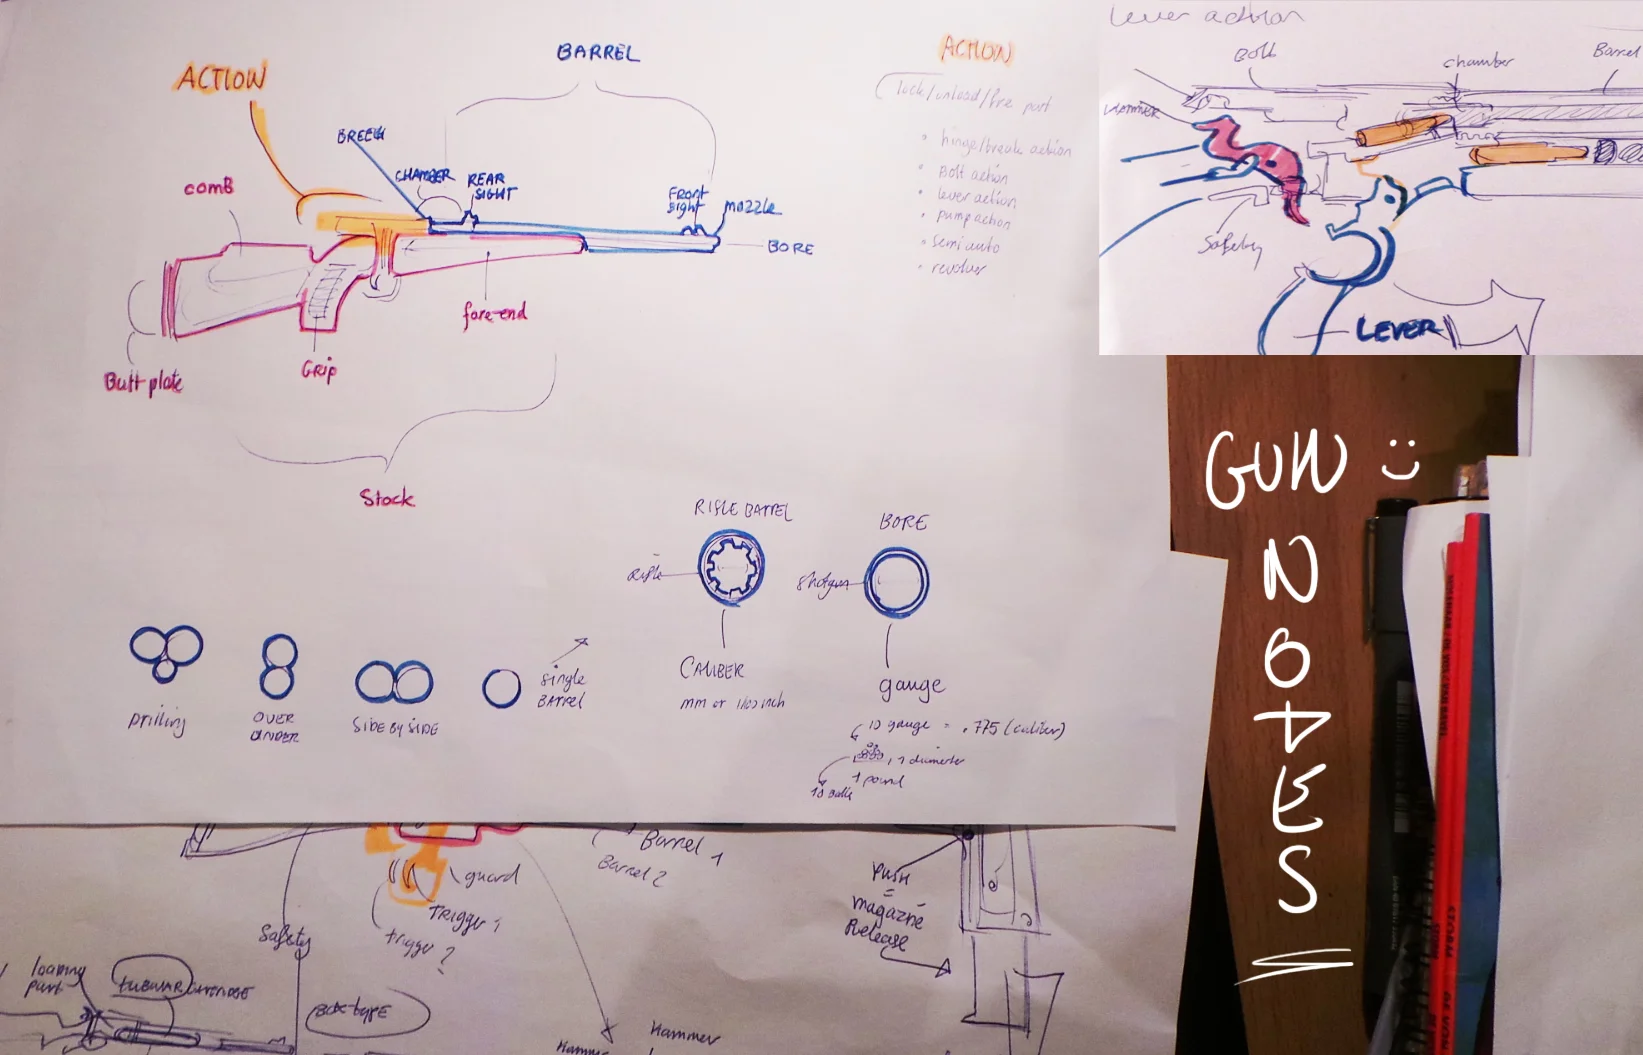 ACTION
BARREL
BREECH
CHAMBER
REAR
SIGHT
FRONT
sight
MUZZLE
BORE
comb
fore-end
Grip
Butt plate
Stock
ACTION
lock/unload/fire part
• hinge/break action
• Bolt action
• lever action
• pump action
• Semi auto
• revolver
lever action
Bolt
chamber
Barrel
HAMMER
Safety
LEVER
GUN :)
N
O
T
E
S
RIFLE BARREL
BORE
rifle
shotgun
CALIBER
mm or 1/100 inch
gauge
10 gauge = .775 (caliber)
, 1 diameter
1 pound
10 balls
Drilling
OVER
UNDER
SIDE BY SIDE
single
BARREL
Barrel 1
Barrel 2
guard
TRigger 1
trigger 2
Safety
loading
port
tubular
Box type
Hammer
Hammer
Push
=
magazine
Release